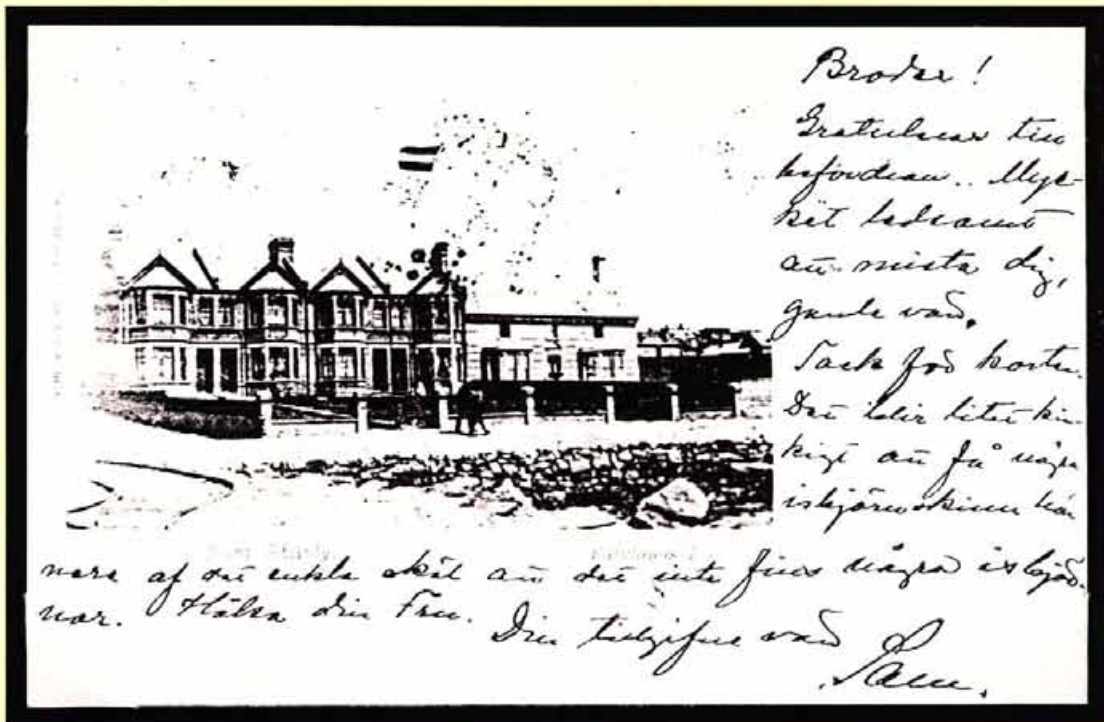 Broder!
Gratulerar till
befordran.. Myc-
ket ledsamt
att mista dig,
gamle vän.
Tack för korten.
Det blir litet kin-
kigt att få några
isbjörnskinn här
nere af det enkla skäl att det inte fins några isbjör-
nar. Hälsa din Fru. Din tillgifne vän
Sam.